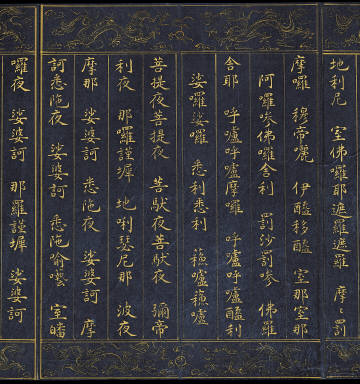 地利尼 室佛囉耶遮羅遮羅 摩摩罰
摩囉 穆帝囇 伊醯移醯 室那室那
阿羅嘇佛囉舍利 罰沙罰嘇 佛羅
舍耶 呼嚧呼嚧摩囉 呼嚧呼嚧醯利
娑囉娑囉 悉利悉利 蘇嚧蘇嚧
菩提夜菩提夜 菩馱夜菩馱夜 彌帝
利夜 那囉謹墀 地唎瑟尼那 波夜
摩那 娑婆訶 悉陁夜 娑婆訶 摩
訶悉陁夜 娑婆訶 悉陁喻藝 室皤
囉夜 娑婆訶 那羅謹墀 娑婆訶